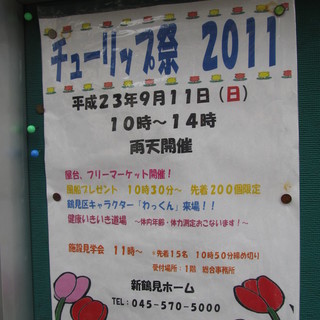 チューリップ祭 2011
平成23年9月11日(日)
10時～14時
雨天開催
屋台、フリーマーケット開催!
風船プレゼント 10時30分～ 先着200個限定
鶴見区キャラクター「わっくん」来場!!
健康いきいき道場 ～体内年齢・体力測定おこないます!～
施設見学会 11時～ ※先着15名 10時50分締め切り
受付場所:1階 総合事務所
新鶴見ホーム
TEL:045-570-5000